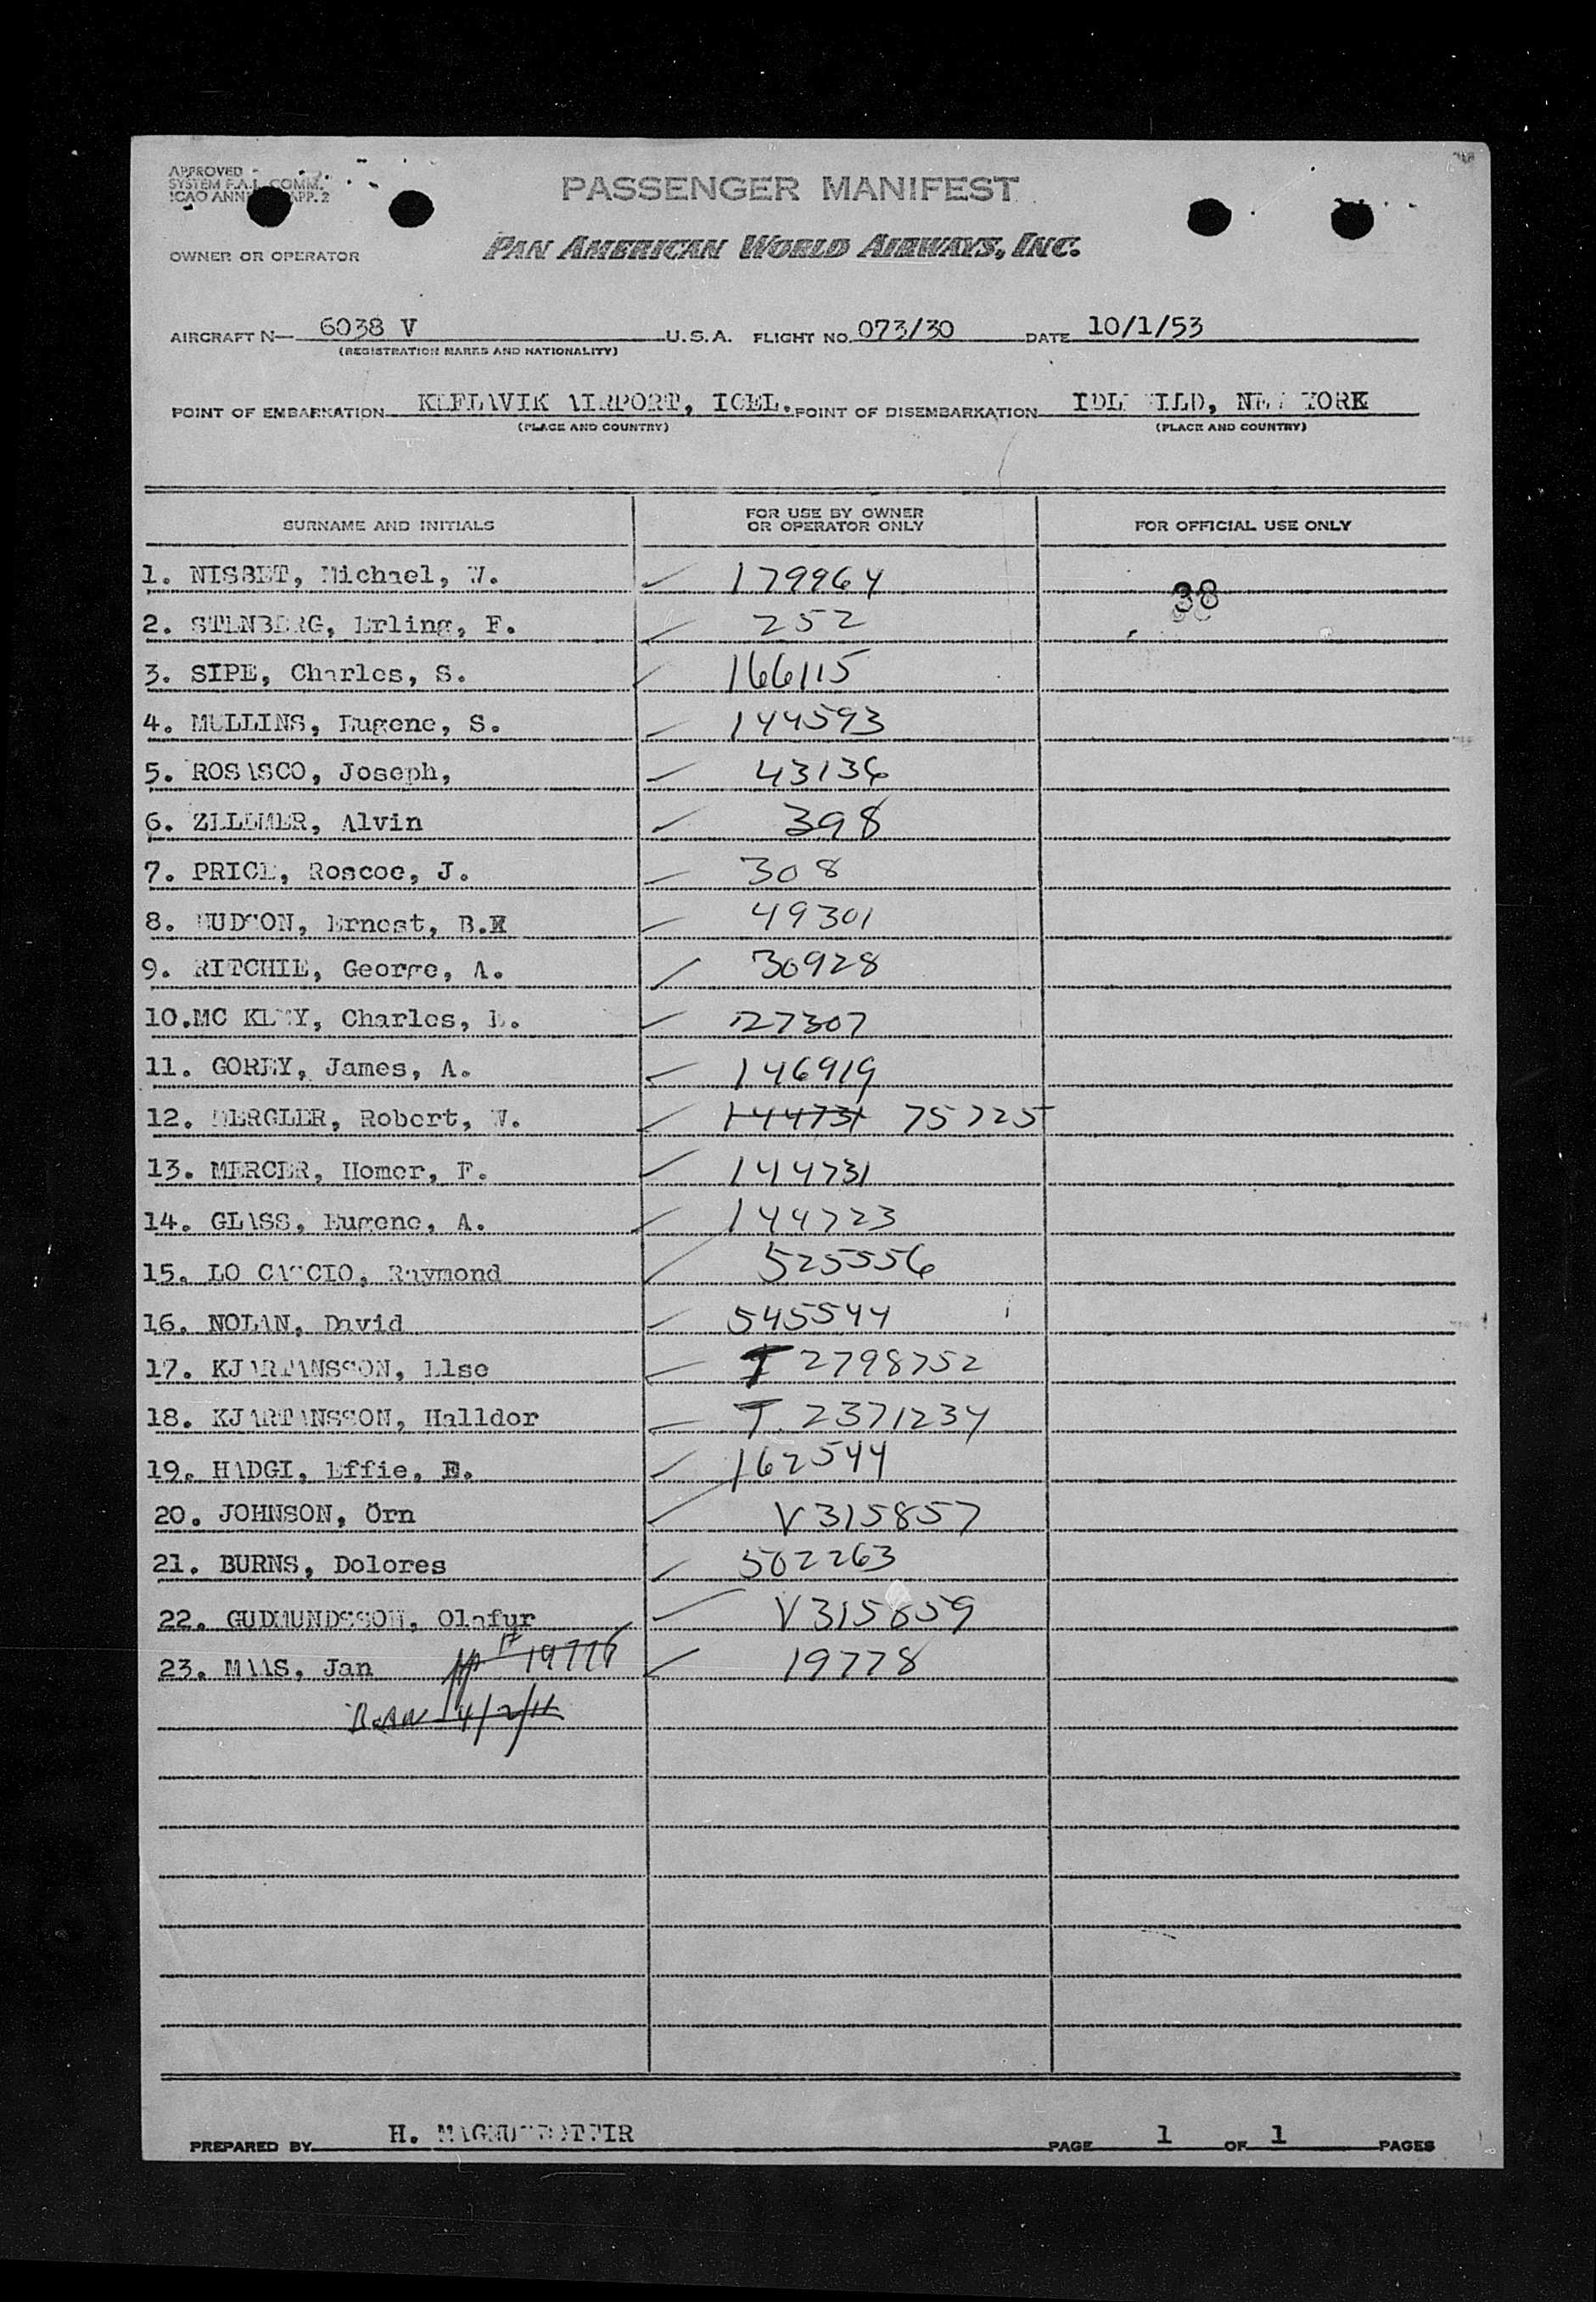 APPROVED
SYSTEM F.A.L. COMM.
ICAO ANN APP. 2
PASSENGER MANIFEST
OWNER OR OPERATOR PAN AMERICAN WORLD AIRWAYS, INC.
AIRCRAFT N— 6038 V U.S.A. FLIGHT NO. 073/30 DATE 10/1/53
(REGISTRATION MARKS AND NATIONALITY)
POINT OF EMBARKATION KEFLAVIK AIRPORT, ICEL. POINT OF DISEMBARKATION IDLEWILD, NEW YORK
(PLACE AND COUNTRY) (PLACE AND COUNTRY)
SURNAME AND INITIALS FOR USE BY OWNER OR OPERATOR ONLY FOR OFFICIAL USE ONLY
1. NISBET, Michael, W. 179964 38
2. STENBERG, Erling, F. 252
3. SIPE, Charles, S. 166115
4. MULLINS, Eugene, S. 144593
5. ROSASCO, Joseph, 43136
6. ZILLMER, Alvin 398
7. PRICE, Roscoe, J. 308
8. HUDSON, Ernest, B. 49301
9. RITCHIE, George, A. 30928
10. MC Charles, E. 27307
11. GOREY, James, A. 146919
12. Robert, W. 144731 75725
13. MERCER, Homer, F. 144731
14. GLASS, Eugene, A. 144723
15. LO CASCIO, Raymond 525556
16. NOLAN, David 545544
17. KJARTANSSON, Ilse I 2798752
18. KJARTANSSON, Halldor T. 2371234
19. HADGI, Effie, E. 162544
20. JOHNSON, Örn V315857
21. BURNS, Dolores 502263
22. GUDMUNDSSON, Olafur V315859
23. MAAS, Jan pp # 19778 19778
Born 4/2/11
PREPARED BY H. MAGNUSDOTTIR PAGE 1 OF 1 PAGES